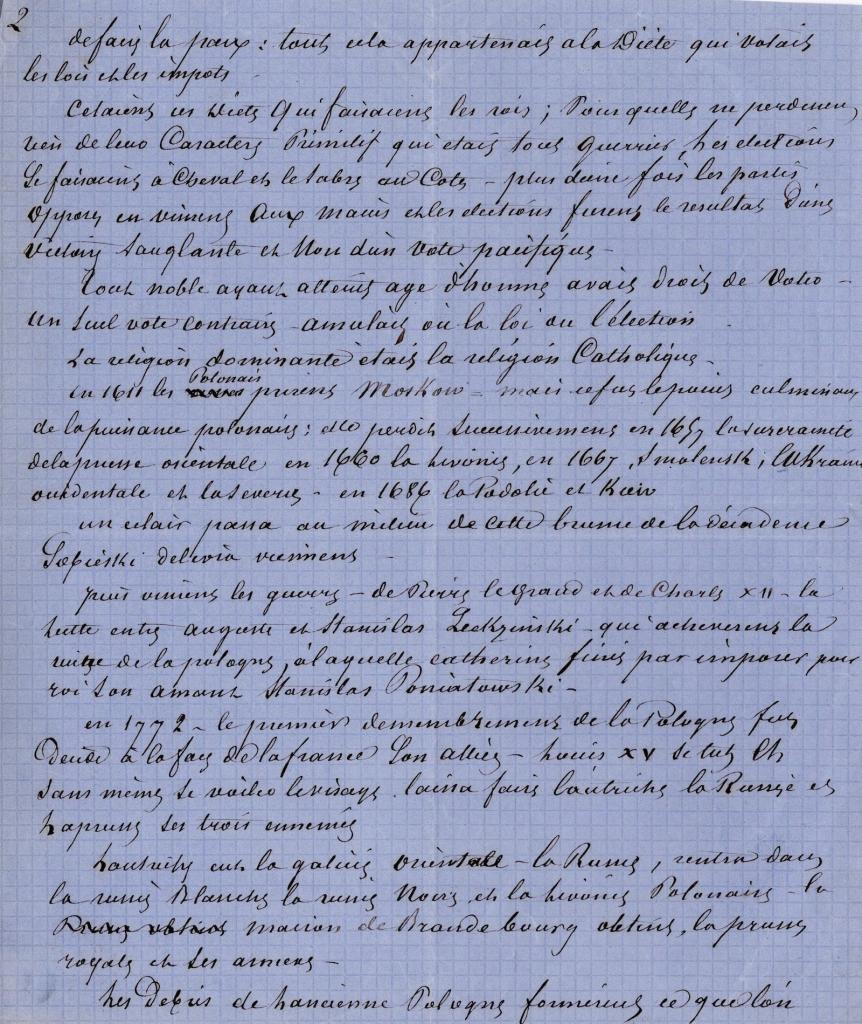 2
de faire la paix : tout cela appartenait a la Diète qui votait
les lois et les impots
Cetaient ces Diets qui faisaient les rois ; Pour quelle ne perdirent
rien de leur Caractere Primitif qui etait tout guerrier, Les elections
se faisaient à Cheval et le sabre au Coté – plus d'une fois les partis
opposes en vinrent aux mains et les elections furent le resultat d'une
victoire sanglante et Non d'un vote pacifique –
Tout noble ayant atteint age d'homme avait droit de Vote –
un seul vote contraire – annulait où la loi ou l'élection
La religion dominante était la religion Catholique –
en 1611 les Polonais prirent Moskow – mais ce fut le point culminant
de la puissance polonaise : elle perdit successivement en 1657 la suzeraineté
de la prusse orientale en 1660 la Livonie, en 1667, Smolensk, l'Ukraine
occidentale et la Severie – en 1686 la Podolie et Kiew
un eclair passa au milieu de cette brume de la décadence
Sobieski delivra vienne –
puis vinrent les guerres – de Pierre le Grand et de Charles XII – la
lutte entre auguste et Stanislas Leckzinski – qui acheverent la
ruine de la pologne, à laquelle catherine finit par imposer pour
roi son amant Stanislas Poniatowski –
en 1772 – le premier demembrement de la Pologne fut
Décidé à la face de la france son alliée – Louis XV se tut Et
sans même se voiler le visage laissa faire l'autriche la Russie et
La prusse ses trois ennemies
L'autriche eut la galicie orientale – la Russie, rentra dans
la russie Blanche la russie Noire et la Livonie Polonaise – la
maison de Brandebourg obtint, la prusse
royale et ses annexes –
Les Debris de L'ancienne Pologne formèrent ce que l'on